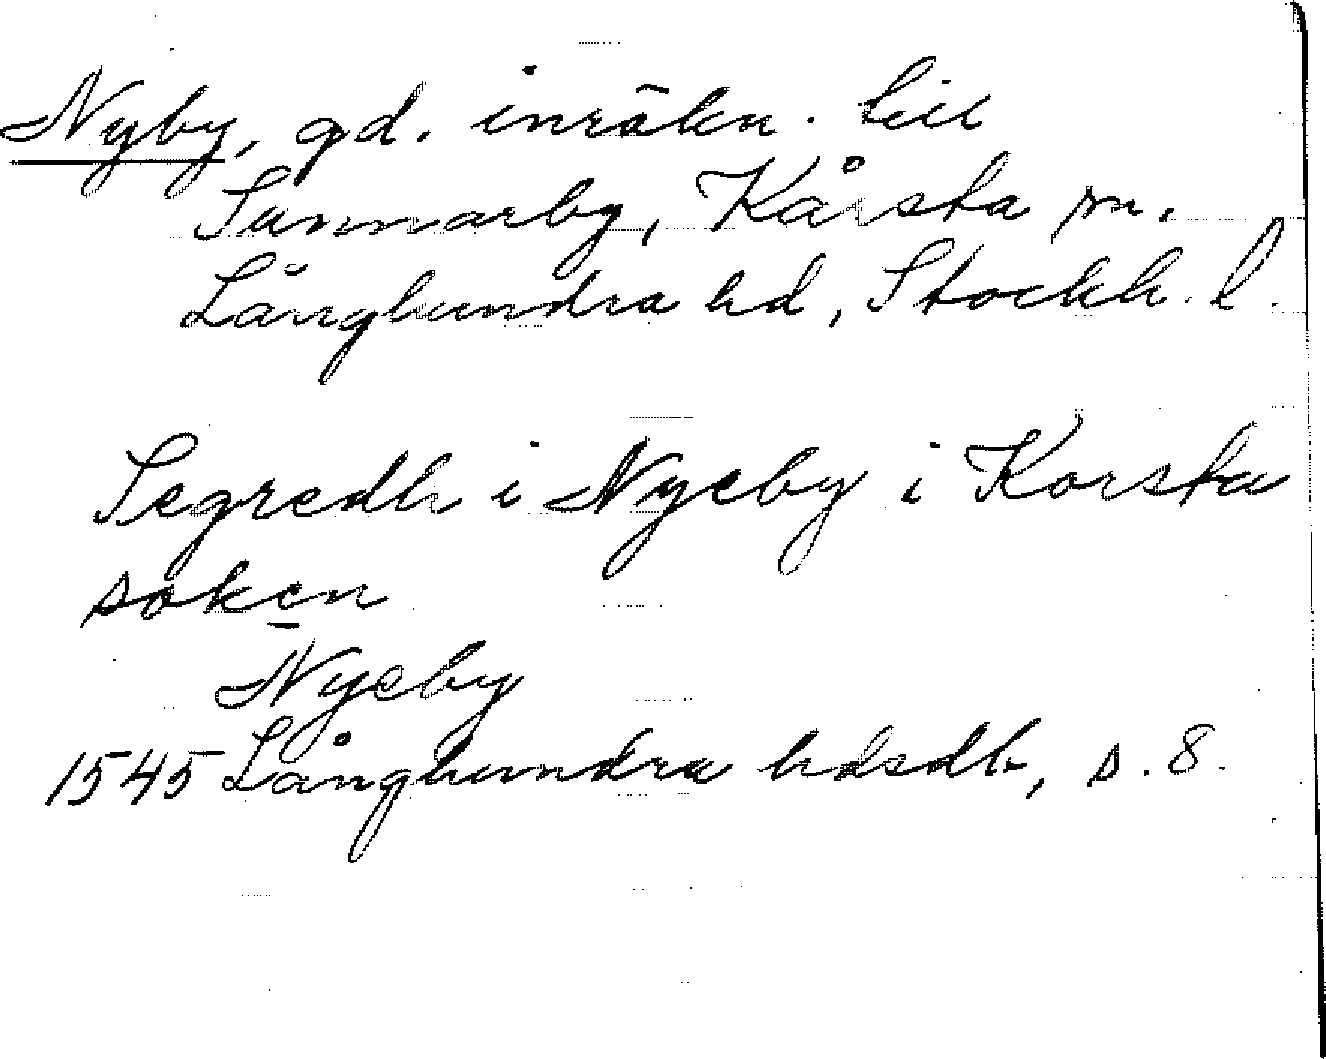 Nyby, gd. inräkn. till
Sunnarby, Kårsta sn.
Långhundra hd, Stockh. l.
Segredh i Nyeby i Korsta
soken
Nyeby
1545 Långhundra hdsdb, s. 8.